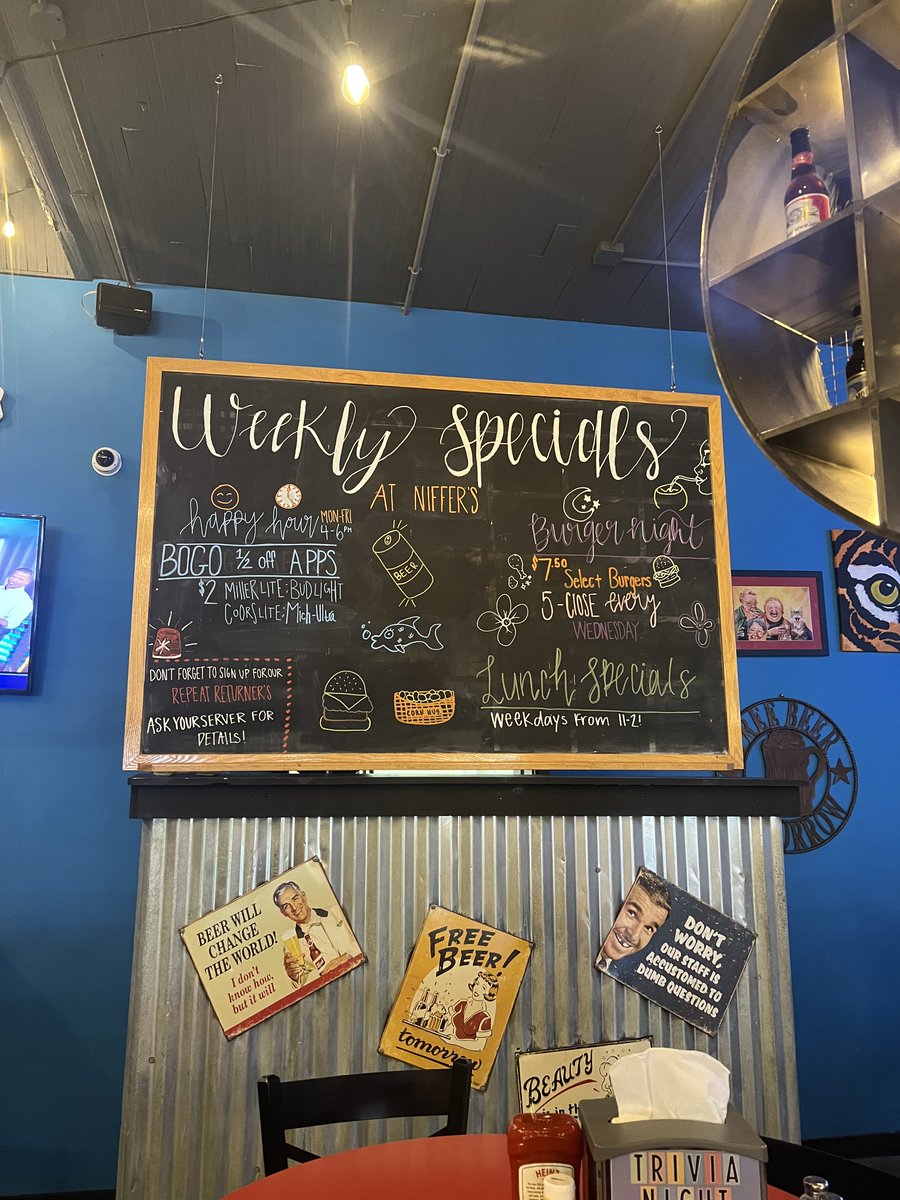 Weekly Specials
AT NIFFER'S
happy hour MON-FRI
4-6PM
BOGO 1/2 off APPS
$2 MillerLite: BUD LIGHT
COORSLITE: Mich-Ultra
BEER
DON'T FORGET TO SIGN UP FOR OUR
REPEAT RETURNER'S
ASK YOUR SERVER FOR
DETAILS!
CORN NUG
Burger night
$7.50
Select Burgers
5-CLOSE every
WEDNESDAY
Lunch Specials
Weekdays From 11-2!
FREE BEER
BEER WILL
CHANGE
THE WORLD!
I don't
know how,
but it will
FREE
BEER!
tomorrow
DON'T
WORRY,
OUR STAFF IS
ACCUSTOMED TO
DUMB QUESTIONS
BEAUTY
is in th
HEINZ
TRIVIA
NIGHT